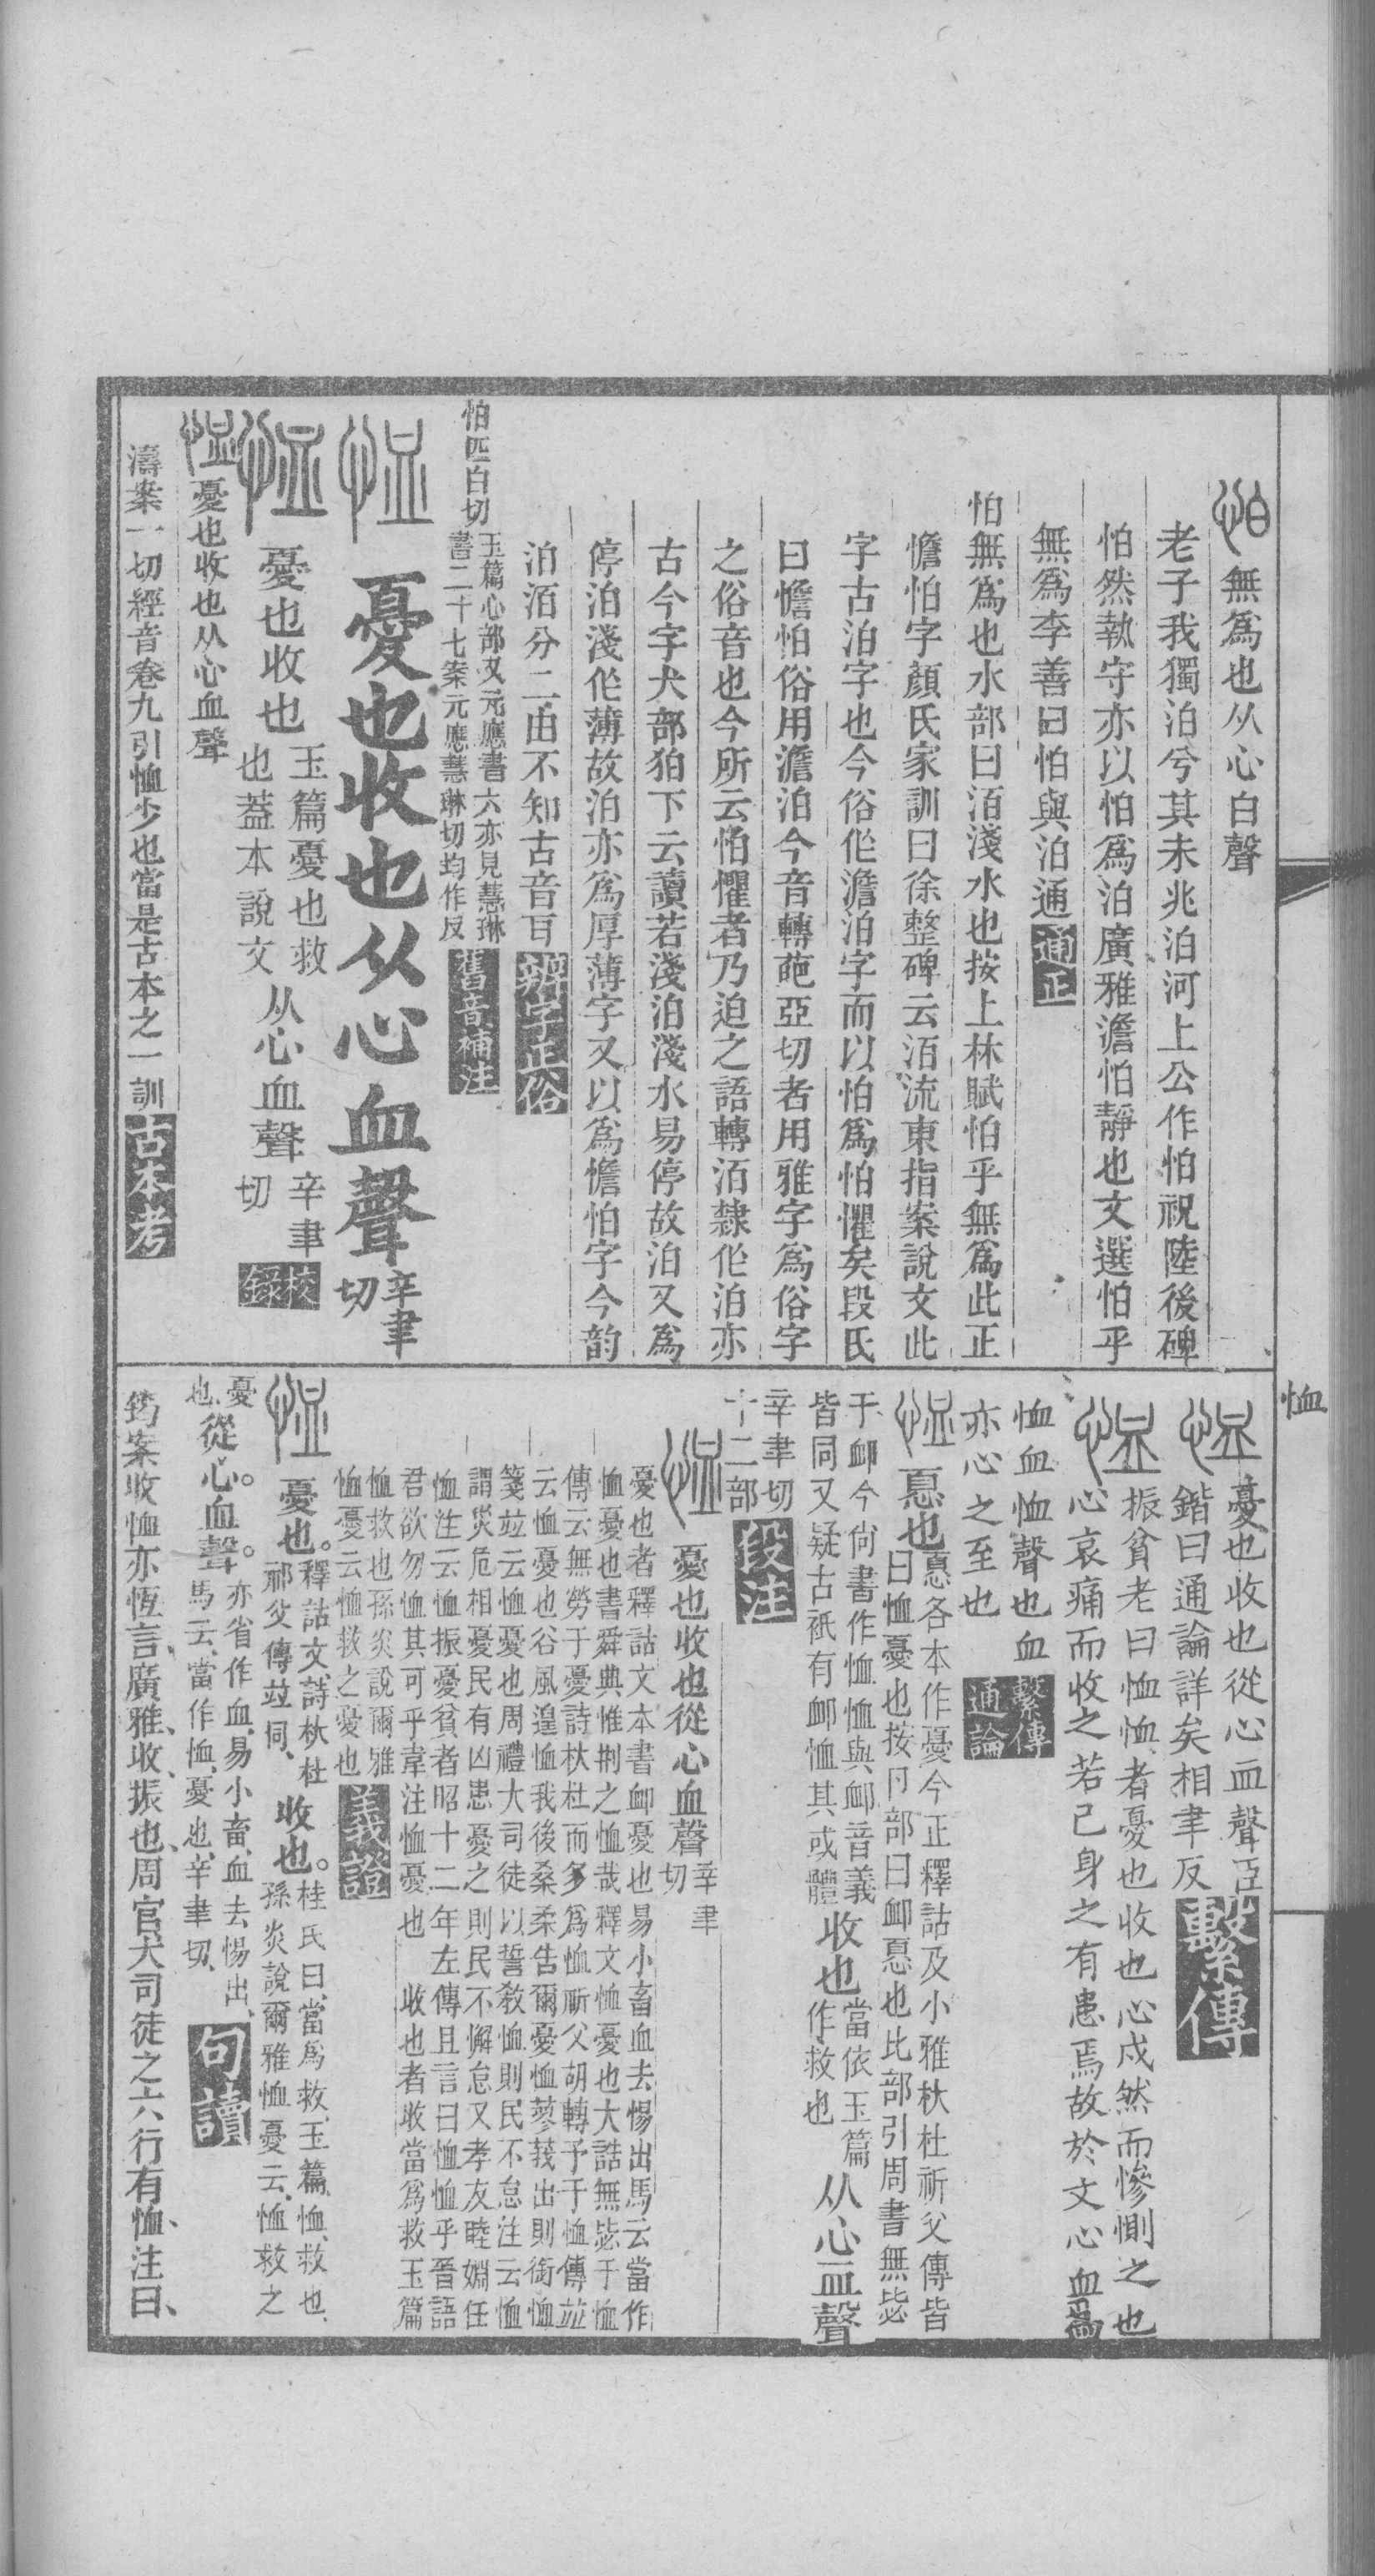 怕無爲也从心白聲
老子我獨泊兮其未兆泊河上公作怕祝陸後碑
怕然執守亦以怕爲泊廣雅澹怕靜也文選怕乎
無爲李善曰怕與泊通通正
怕無爲也水部曰洦淺水也按上林賦怕乎無爲此正
憺怕字顏氏家訓曰徐整碑云洦流東指案說文此
字古泊字也今俗作澹泊字而以怕爲怕懼矣段氏
曰憺怕俗用澹泊今音轉葩亞切者用雅字爲俗字
之俗音也今所云怕懼者乃迫之語轉洦隸作泊亦
古今字犬部狛下云讀若淺泊淺水易停故泊又爲
停泊淺作薄故泊亦爲厚薄字又以爲憺怕字今韵
泊洦分二由不知古音百辨字正俗
怕匹白切
玉篇心部文元應書六亦見慧琳
書二十七案元應慧琳切均作反
舊音補注
恤 憂也收也从心血聲
辛聿
切
恤 憂也收也
玉篇憂也救
也蓋本說文
从心血聲
辛聿
切
校錄
恤憂也收也从心血聲
濤案一切經音卷九引恤少也當是古本之一訓古本考
恤
恤憂也收也從心血聲臣
鍇曰通論詳矣相聿反繫傳
恤振貧老曰恤恤者憂也收也心戌然而慘惻之也
心哀痛而收之若己身之有患焉故於文心血爲
恤血恤聲也血
亦心之至也
繫傳
通論
恤㥑也
㥑各本作憂今正釋詁及小雅杕杜祈父傳皆
曰恤憂也按卪部曰卹㥑也比部引周書無毖
于卹今尙書作恤恤與卹音義
皆同又疑古衹有卹恤其或體
收也
當依玉篇
作救也
从心血聲
辛聿切
十二部
段注
恤 憂也收也從心血聲
辛聿
切
憂也者釋詁文本書卹憂也易小畜血去惕出馬云當作
恤憂也書舜典惟刑之恤哉釋文恤憂也大誥無毖于恤
傳云無勞于憂詩杕杜而多爲恤祈父胡轉予于恤傳竝
云恤憂也谷風遑恤我後桑柔告爾憂恤蓼莪出則銜恤
箋竝云恤憂也周禮大司徒以誓敎恤則民不怠注云恤
謂災危相憂民有凶患憂之則民不懈怠又孝友睦婣任
恤注云恤振憂貧者昭十二年左傳且言曰恤恤乎晉語
君欲勿恤其可乎韋注恤憂也 收也者收當爲救玉篇
恤救也孫炎說爾雅
恤憂云恤救之憂也
義證
恤 憂也。
釋詁文詩杕杜
祁父傳竝同、
收也。
桂氏曰當爲救、玉篇恤、救也、
孫炎說爾雅恤憂云、恤救之
憂
也、
從心。血聲。
亦省作血、易小畜、血去惕出、
馬云、當作恤、憂也、辛聿切、
句讀
筠案收恤亦恆言、廣雅、收、振也、周官大司徒之六行有恤、注曰、